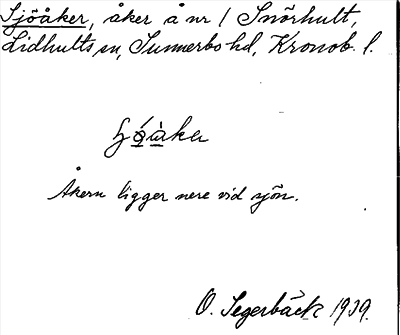 Sjöåker, åker å nr 1 Snörhult,
Lidhults sn, Sunnerbo hd, Kronob. l.
Åkern ligger nere vid sjön.
O. Segerbäck 1939.